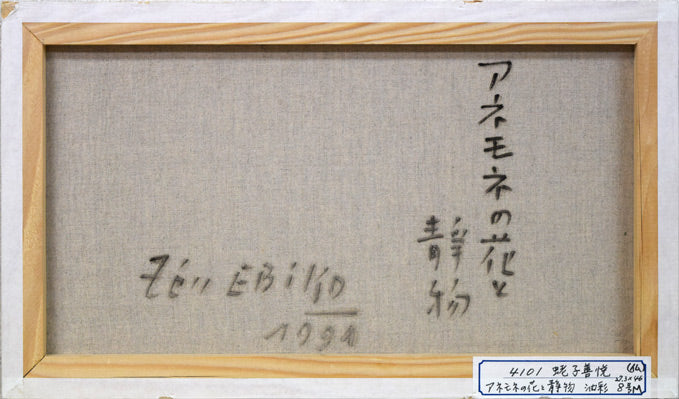 アネモネの花と
静物
Zén EBiko
1991
4101 蛯子善悦
アネモネの花と静物 油彩 8号M
27.3×46